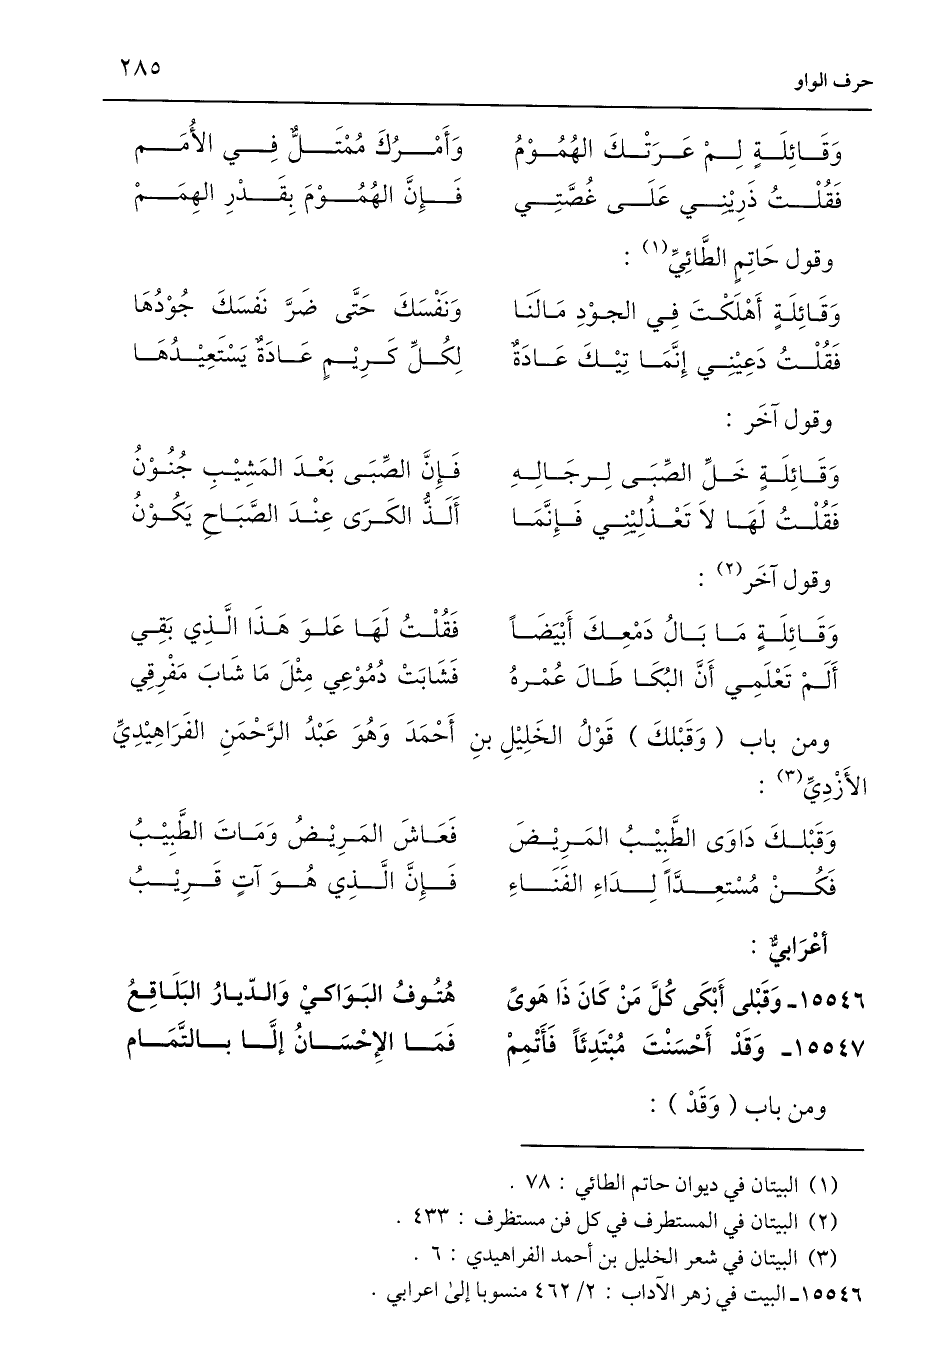 حرف الواو ٢٨٥
وَقَـائِلَـةٍ لِـمْ عَـرَتْـكَ الهُمُـوْمُ وَأَمْـرُكَ مُمْتَـلٌّ فِـي الأُمَـم
فَقُلْـتُ ذَرِيْنِـي عَلَـى غُصَّتِـي فَـإِنَّ الهُمُـوْمَ بِقَـدْرِ الهِمَـمْ
وقول حَاتِمٍ الطَّائِيِّ(١) :
وَقَـائِلَةٍ أَهْلَكْـتَ فِـي الجـوْدِ مَـالَنَا وَنَفْسَكَ حَتَّى ضَرَّ نَفسَكَ جُوْدُهَا
فَقُلْـتُ دَعِيْنِـي إِنَّمَـا تِيْـكَ عَـادَةٌ لِكُـلِّ كَـرِيْـمٍ عَـادَةٌ يَسْتَعِيْـدُهَـا
وقول آخَر :
وَقَـائِلَـةٍ خَـلِّ الصِّبَـى لِـرِجَـالِـهِ فَـإِنَّ الصِّبَـى بَعْـدَ المَشِيْـبِ جُنُـوْنُ
فَقُلْـتُ لَهَـا لاَ تَعْـذُلِيْنِـي فَـإِنَّمَـا أَلَـذُّ الكَـرَى عِنْـدَ الصَّبَـاحِ يَكُـوْنُ
وقول آخَر(٢) :
وَقَـائِلَـةٍ مَـا بَـالُ دَمْعِـكَ أَبْيَضَـاً فَقُلْـتُ لَهَـا عَلـوَ هَـذَا الَّـذِي بَقِـي
أَلَـمْ تَعْلَمِـي أَنَّ البُكَـا طَـالَ عُمْـرهُ فَشَابَتْ دُمُوْعِي مِثْلَ مَا شَابَ مَفْرِقِي
ومن باب ( وَقَبْلكَ ) قَوْلُ الخَلِيْلِ بنِ أَحْمَدَ وَهُوَ عَبْدُ الرَّحْمَنِ الفَرَاهِيْدِيِّ
الأَزْدِيِّ(٣) :
وَقَبْلـكَ دَاوَى الطَّبِيْـبُ المَـرِيْـضَ فَعَـاشَ المَـرِيْـضُ وَمَـاتَ الطَّبِيْـبُ
فَكُـنْ مُسْتَعِـدَّاً لِـدَاءِ الفَنَـاءِ فَـإِنَّ الَّـذِي هُـوَ آتٍ قَـرِيْـبُ
أعْرَابيٌّ :
١٥٥٤٦ـ وَقَبْلى أَبْكَى كُلَّ مَنْ كَانَ ذَا هَوىً هُتُوفُ البَوَاكيْ وَالدّيارُ البَلَاقِعُ
١٥٥٤٧ـ وَقَدْ أَحْسَنْتَ مُبْتَدِئاً فَأَتْمِمْ فَمَـا الإِحْسَـانُ إِلَّـا بـالتَّمَـام
ومن باب ( وَقَدْ ) :
(١) البيتان في ديوان حاتم الطائي : ٧٨ .
(٢) البيتان في المستطرف في كل فن مستظرف : ٤٣٣ .
(٣) البيتان في شعر الخليل بن أحمد الفراهيدي : ٦ .
١٥٥٤٦ـ البيت في زهر الآداب : ٢/ ٤٦٢ منسوبا إلى اعرابي .